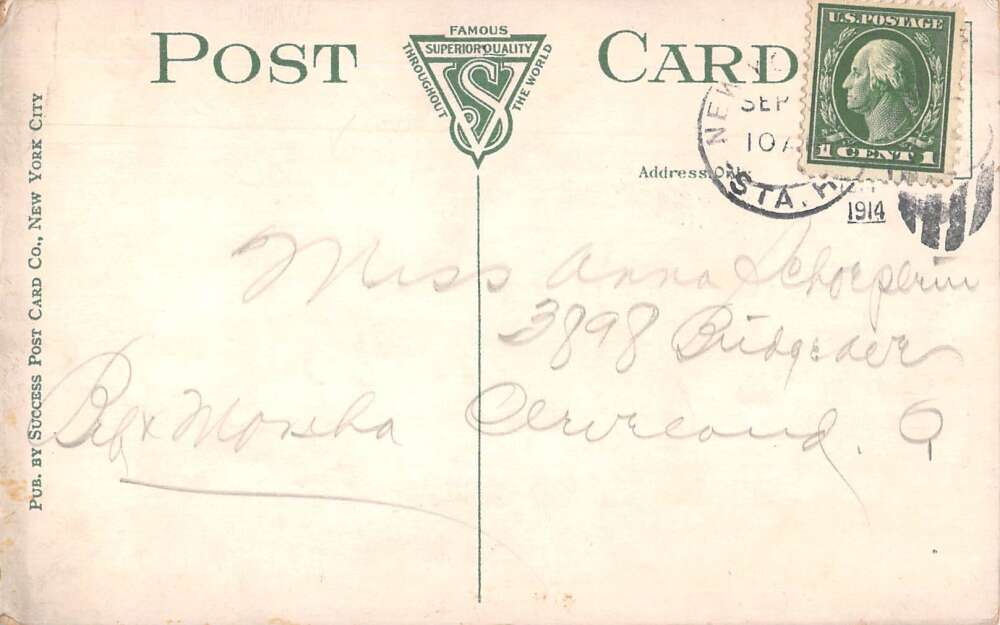 POST CARD
FAMOUS
SUPERIOR QUALITY
THROUGHOUT
THE WORLD
VS
U.S. POSTAGE
1 CENT 1
NEW
SEP
10 A
STA.
1914
Address Only
PUB. BY SUCCESS POST CARD CO., NEW YORK CITY
Miss Anna
3898
Cleveland. O